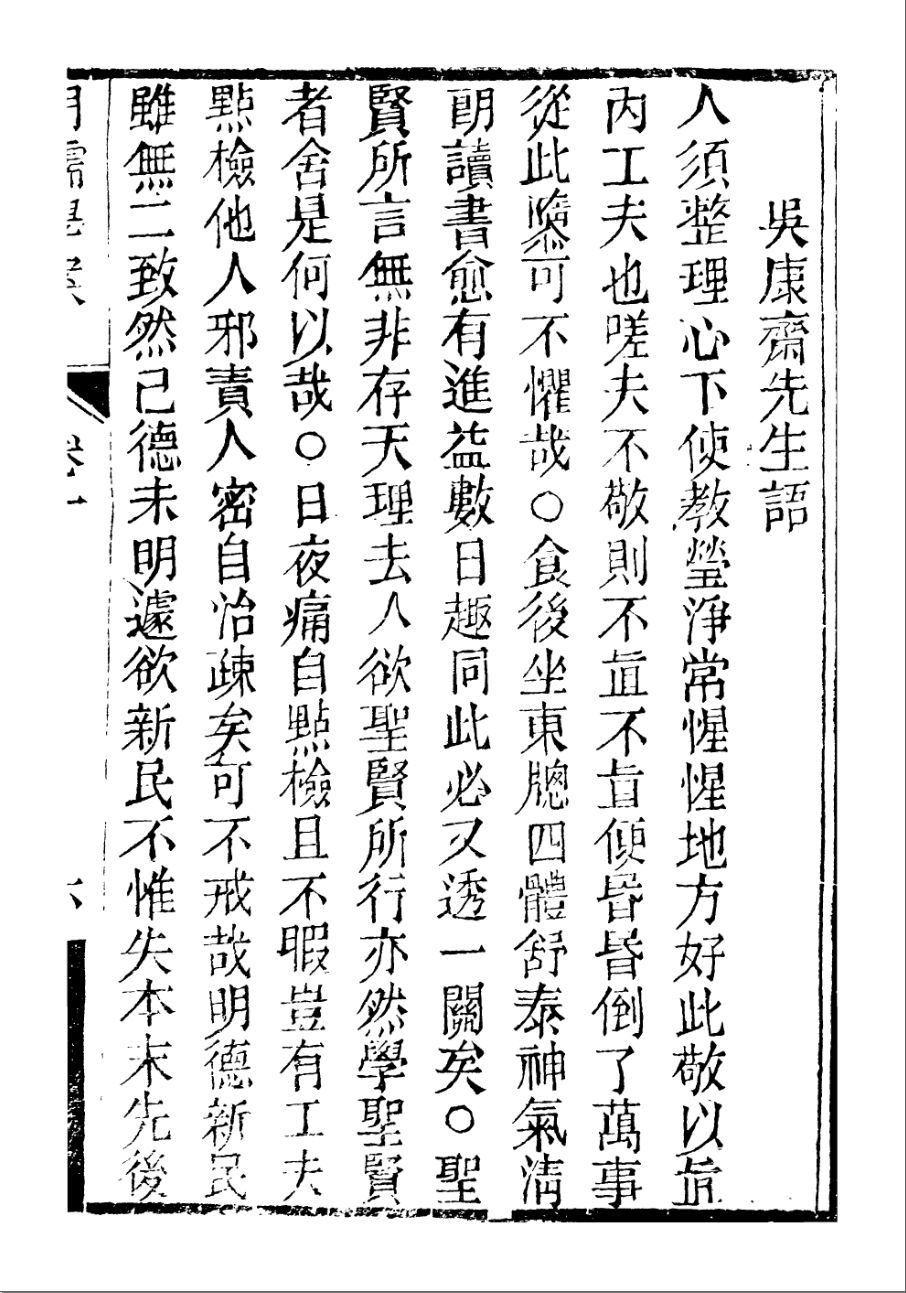 吳康齋先生語
人須整理心下使教瑩淨常惺惺地方好此敬以直
內工夫也嗟夫不敬則不直不直便昏昏倒了萬事
從此隳可不懼哉○食後坐東牎四體舒泰神氣淸
朗讀書愈有進益數日趣同此必又透一關矣○聖
賢所言無非存天理去人欲聖賢所行亦然學聖賢
者舍是何以哉○日夜痛自點檢且不暇豈有工夫
點檢他人邪責人密自治疎矣可不戒哉明德新民
雖無二致然己德未明遽欲新民不惟失本末先後
明儒學案
卷一
六